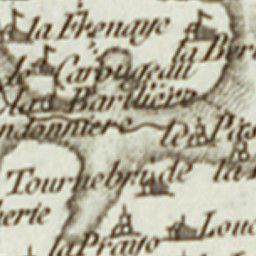 la Frenaye
la Ber
le Carougeau
las Barillière
ndonniere
le Pas
Tournebryde
la
herie
Lou
la Praye